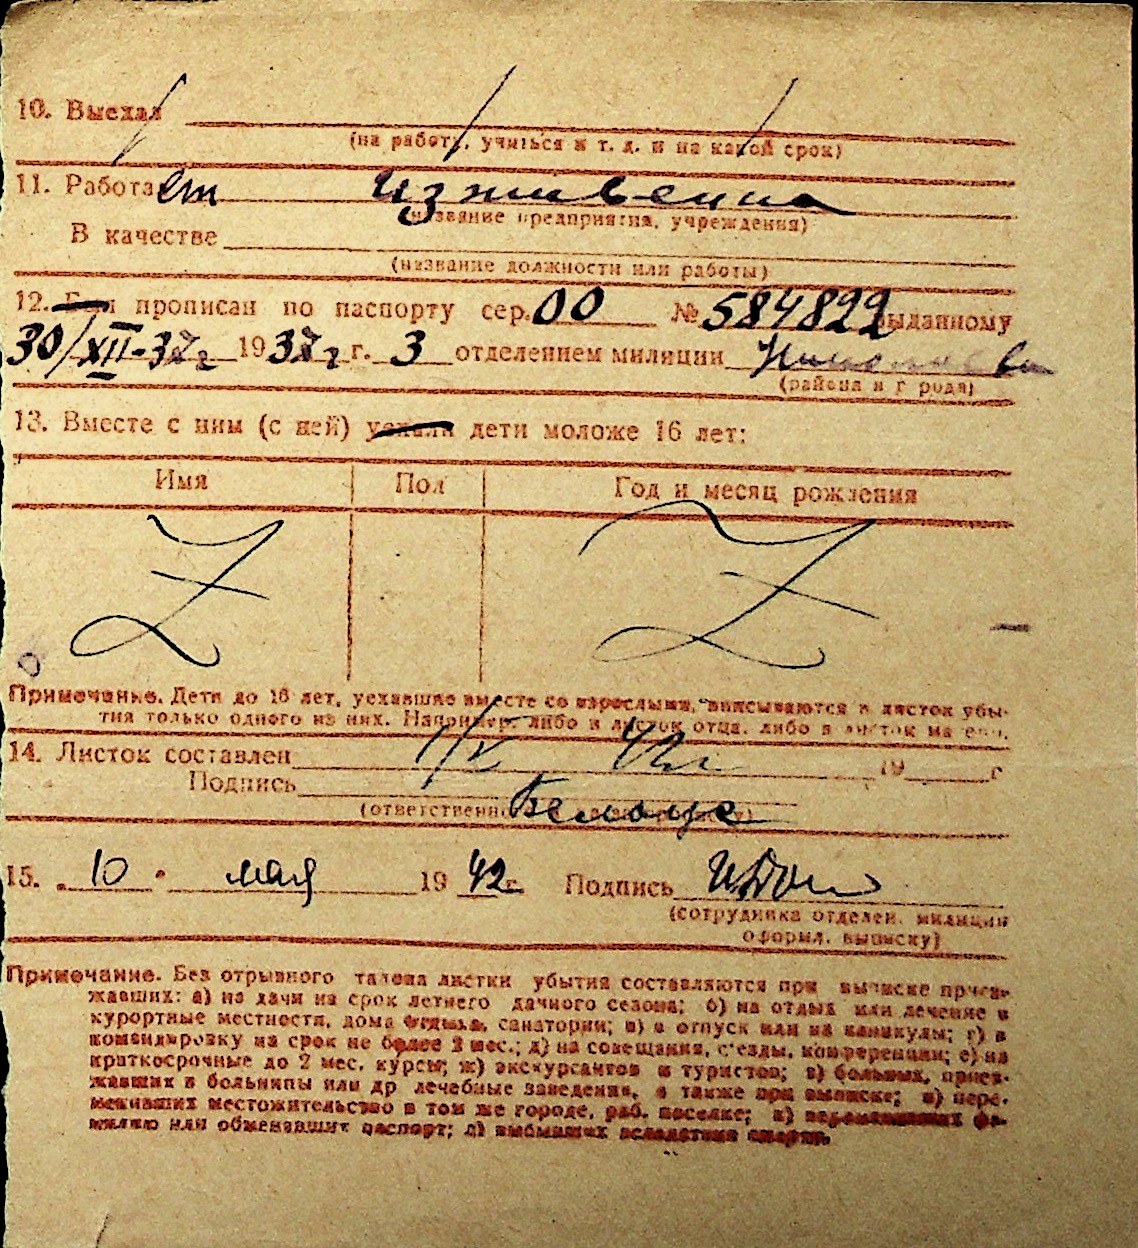 10. Выехал
(на работу, учиться и т. д. и на какой срок)
11. Работает иждивенка
(название предприятия, учреждения)
В качестве
(название должности или работы)
12. прописан по паспорту сер. 00 № 584822 выданному
30/XII-37г 1937г г. 3 отделением милиции
(района и города)
13. Вместе с ним (с ней) уехали дети моложе 16 лет:
Имя Пол Год и месяц рождения
Примечание. Дети до 16 лет, уехавшие вместе со взрослыми, вписываются в листок убы-
тия только одного из них. Например: либо в листок отца, либо в листок матери.
14. Листок составлен 42г. 19 г
Подпись
(ответственного
15. „ 10 " мая 1942г. Подпись
(сотрудника отделен. милиции
оформл. выписку)
Примечание. Без отрывного талона листки убытия составляются при выписке приез-
жавших: а) на дачи на срок летнего дачного сезона; б) на отдых или лечение в
курортные местности, дома отдыха, санатории; в) в отпуск или на каникулы; г) в
командировку на срок не более 2 мес.; д) на совещания, съезды, конференции; е) на
краткосрочные до 2 мес. курсы; ж) экскурсантов и туристов; з) больных, приез-
жавших в больницы или др лечебные заведения, а также при выписке; и) пере-
менивших местожительство в том же городе, раб. поселке; к) переменивших фа-
милию или обменявших паспорт; л) выбывших вследствие смерти.